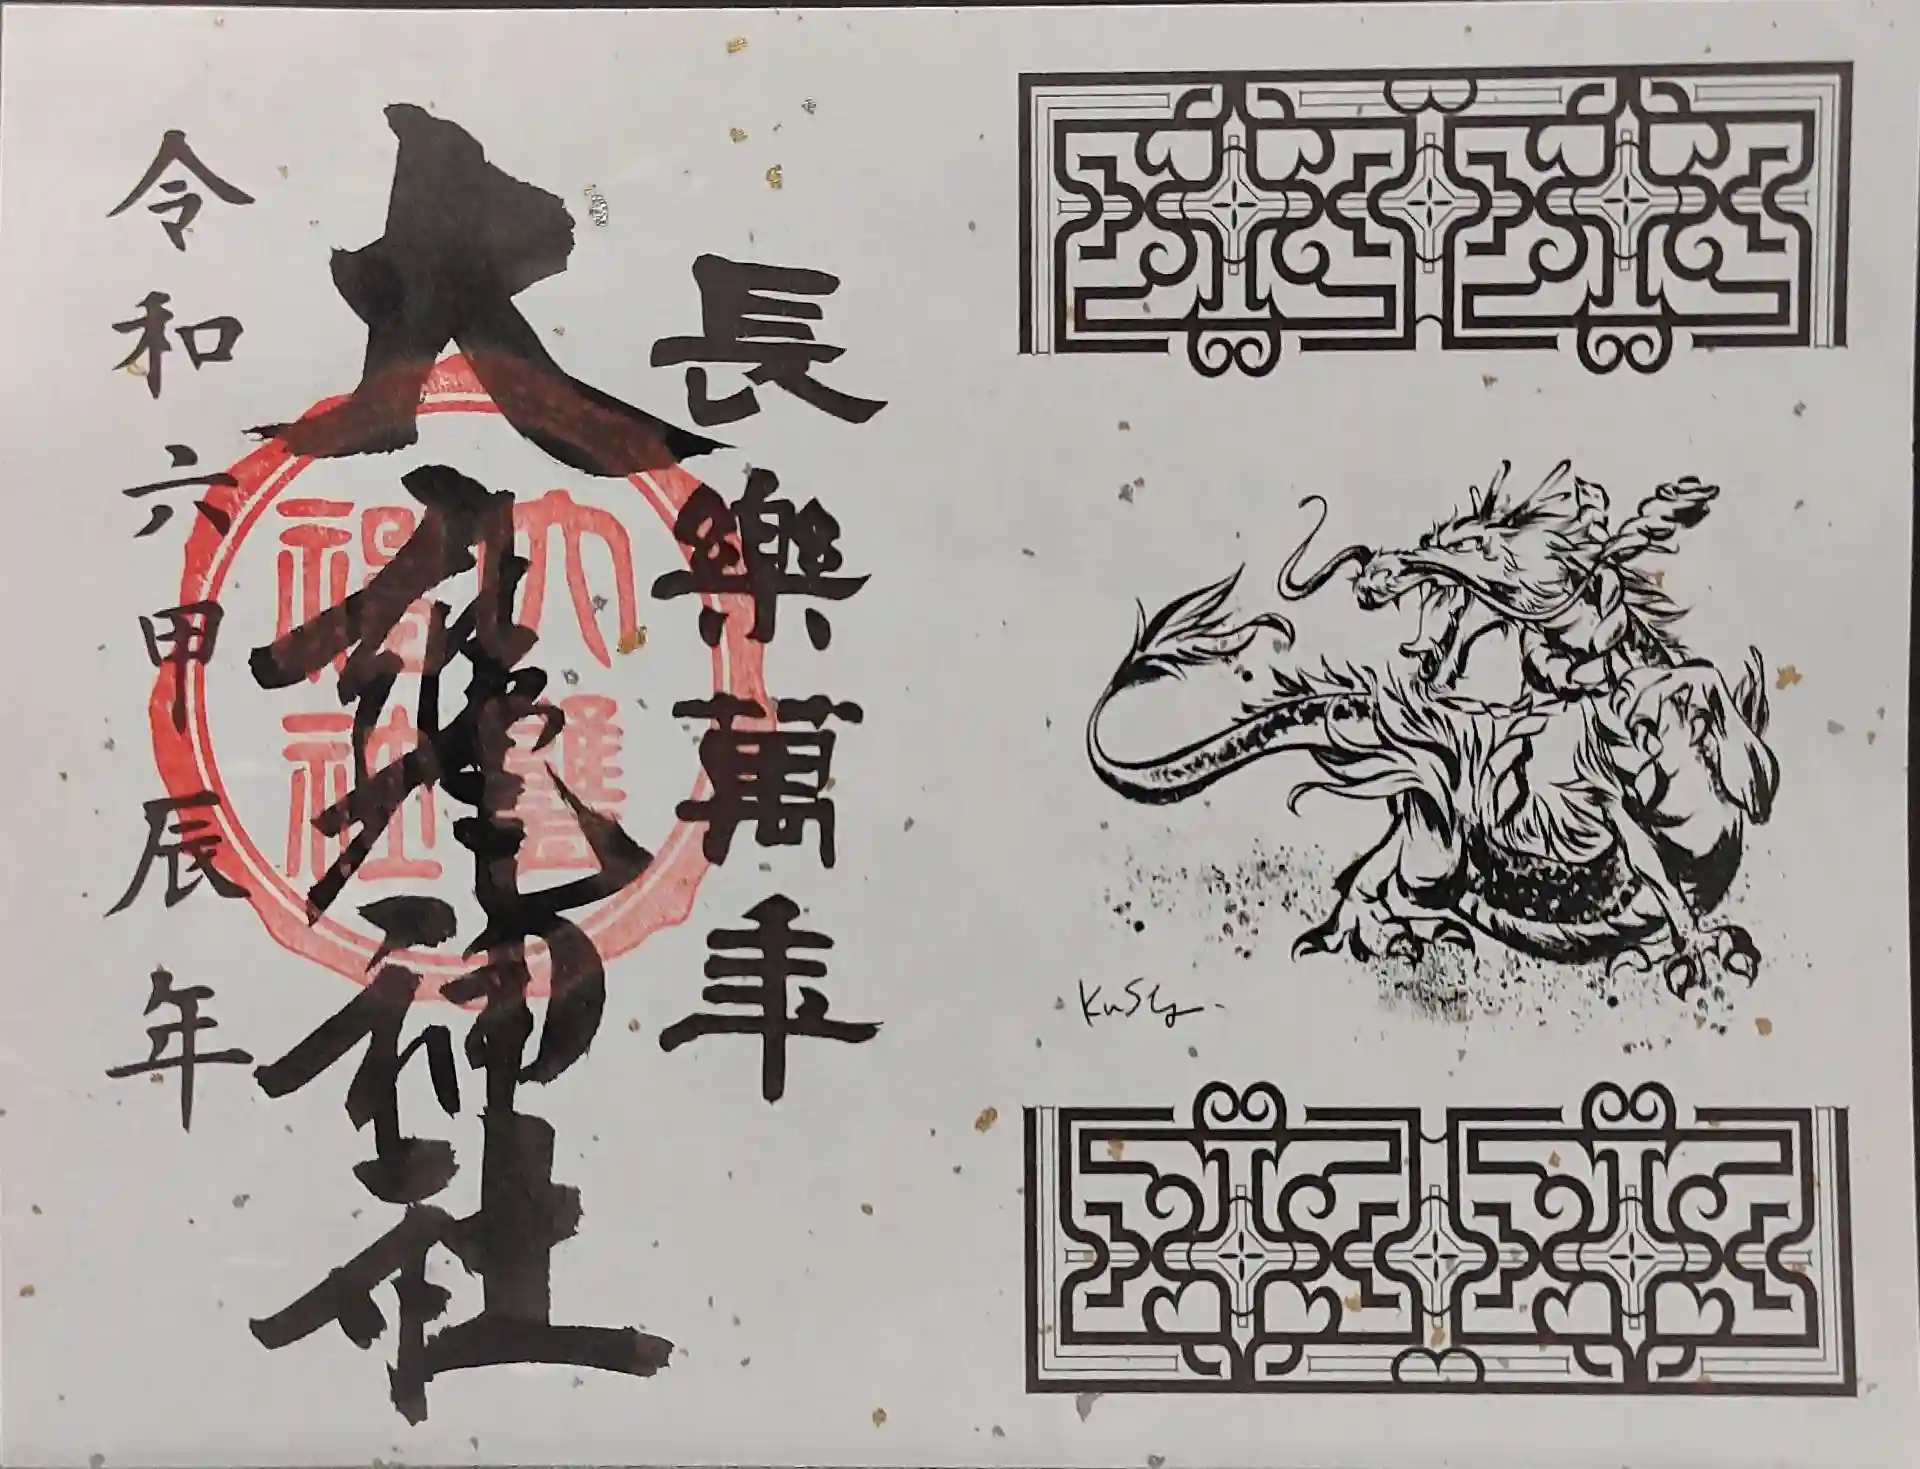 長樂萬年
大甕神社
大甕
神社
令和六甲辰年